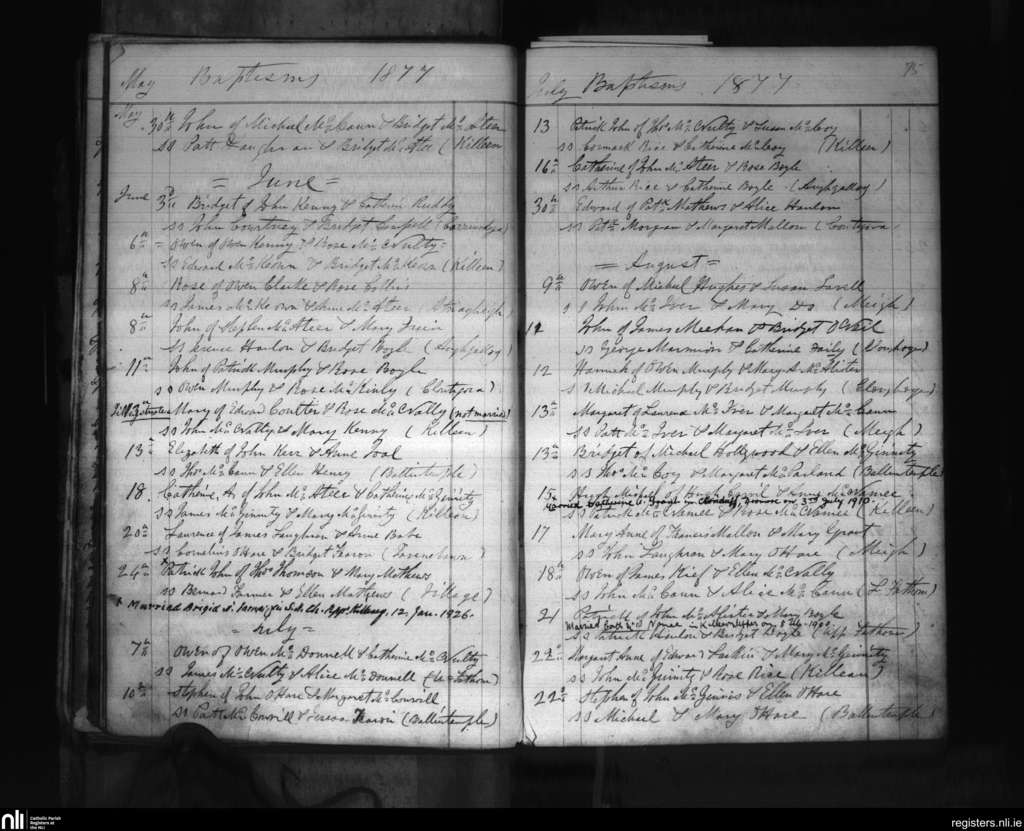 May Baptisms 1877
May 30th John of Michael McCann & Bridget McAteer
ss Patt & Bridget McAtee (Killeen
= June =
June 3rd Bridget of John Kenny & Catherine Ruddy
ss John Courtney & Bridget Campbell
6th Owen of Owen Kenny & Rose McNulty =
ss Edward McKeown & Bridget McKeon (Killeen)
8th Rose of Owen Clarke & Rose Collins
ss James McKeown & Anne McAteer
8th John of Stephen McAteer & Mary
ss Hanlon & Bridget Boyle (Aughgallog)
11th John of Patrick Murphy & Rose Boyle
ss Owen Murphy & Rose McKinly (Clontygora)
Illegitimate Mary of Edward Coulter & Rose McNally (not married)
ss John McNally & Mary Kenny (Killeen)
13th Elizabeth of John Kerr & Anne Toal
ss Thos McCann & Ellen Henry (Ballintemple)
18 Catherine of John McAteer & Catherine McGinnity
ss James McGinnity & Mary McGinnity (Killeen)
20th Laurence of James Loughran & Anne Babe
ss Cornelius O'Hare & Bridget Fearon
24th + Patrick John of Thos Thomson & Mary Mathews
ss Bernard Farmer & Ellen Mathews (Village)
+ Married Brigid in 12, Jan. 1926.
= July =
7th Owen of Owen McDonnell & Catherine McNulty
ss James McNulty & Alice McDonnell
10th Stephen of John O'Hare & Margaret McConvill
ss Patt McConvill & Teresa Fearon (Ballintemple)
July Baptisms 1877 75
13 Patrick John of Thos McNulty & Susan McCoy
ss Cormack Rice & Catherine McCoy (Killeen)
16th Catherine of John McAteer & Rose Boyle
ss Arthur Rice & Catherine Boyle (Aughgallog)
30th Edward of Patk Mathews & Alice Hanlon
ss Patk Morgan & Margaret Mallon (Clontygora
= August =
9th Owen of Michael Hughes & Susan Lavell
ss John McIver & Mary Do (Meigh)
12 John of James Meehan & Bridget O'Neil
ss George Marmion & Catherine Daily (Cloughoge)
12 Hannah of Owen Murphy & Mary A. McAlister
ss Michael Murphy & Bridget Murphy (Cloughoge)
13th Margaret of Laurence McIver & Margaret McCann
ss Patt McIver & Margaret McIver (Meigh)
13th Bridget of Michael Hollywood & Ellen McGinnity
ss Thos McCoy & Margaret McParland (Ballintemple)
15 Hugh Michael of Hugh & Anne McNamee
Married Catherine Grant in on 3rd July 1910.
ss Patrick McNamee & Rose McNamee (Killeen)
17 Mary Anne of Francis Mallon & Mary Grant
ss John Loughran & Mary O'Hare (Meigh)
18th Owen of James & Ellen McNally
ss John McCann & Alice McCann (L. Fathom)
21 Patrick of John McAlister & Mary Boyle
Married in 8 Feb. 1900
ss Patrick Hanlon & Bridget Boyle (upp Fathom)
22nd Margaret Anne of Edward Larkin & Mary McGinnity
ss John McGinnity & Rose Rice (Killeen)
22nd Stephen of John McGinnis & Ellen O'Hare
ss Michael & Mary O'Hare (Ballintemple)
nli Catholic Parish
Registers at
the NLI
registers.nli.ie